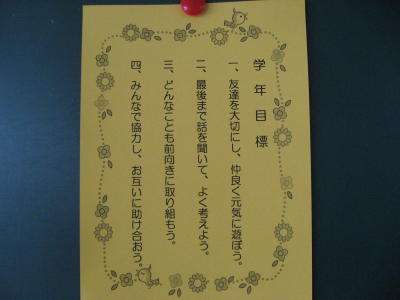 学年目標
一、友達を大切にし、仲良く元気に遊ぼう。
二、最後まで話を聞いて、よく考えよう。
三、どんなことも前向きに取り組もう。
四、みんなで協力し、お互いに助け合おう。